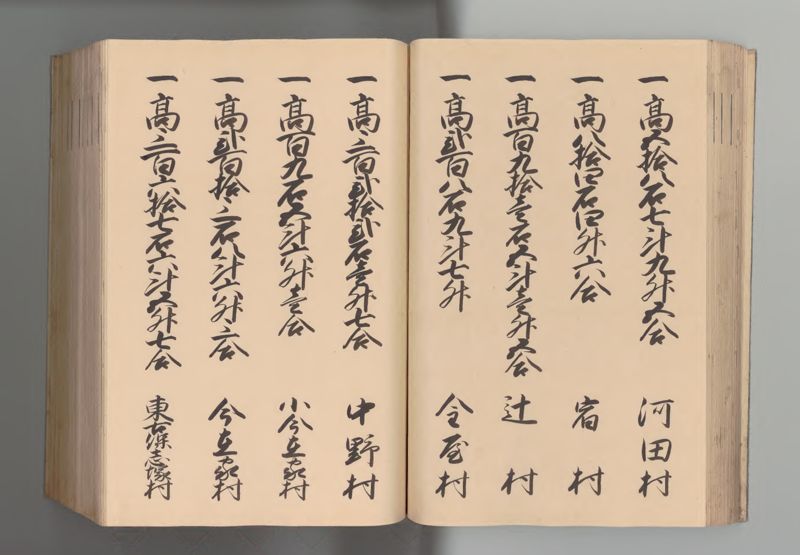 一 高五拾八石七斗九升五合 河田村
一 高八拾四石四升六合 宿村
一 高百九拾壱石五斗壱升五合 辻村
一 高弐百八石九斗七升 今屋村
一 高三百弐拾弐石壱升七合 中野村
一 高百九石五斗六升壱合 小今在家村
一 高弐百拾三石八斗六升三合 今在家村
一 高三百六拾七石六斗五升七合 東古保志塚村